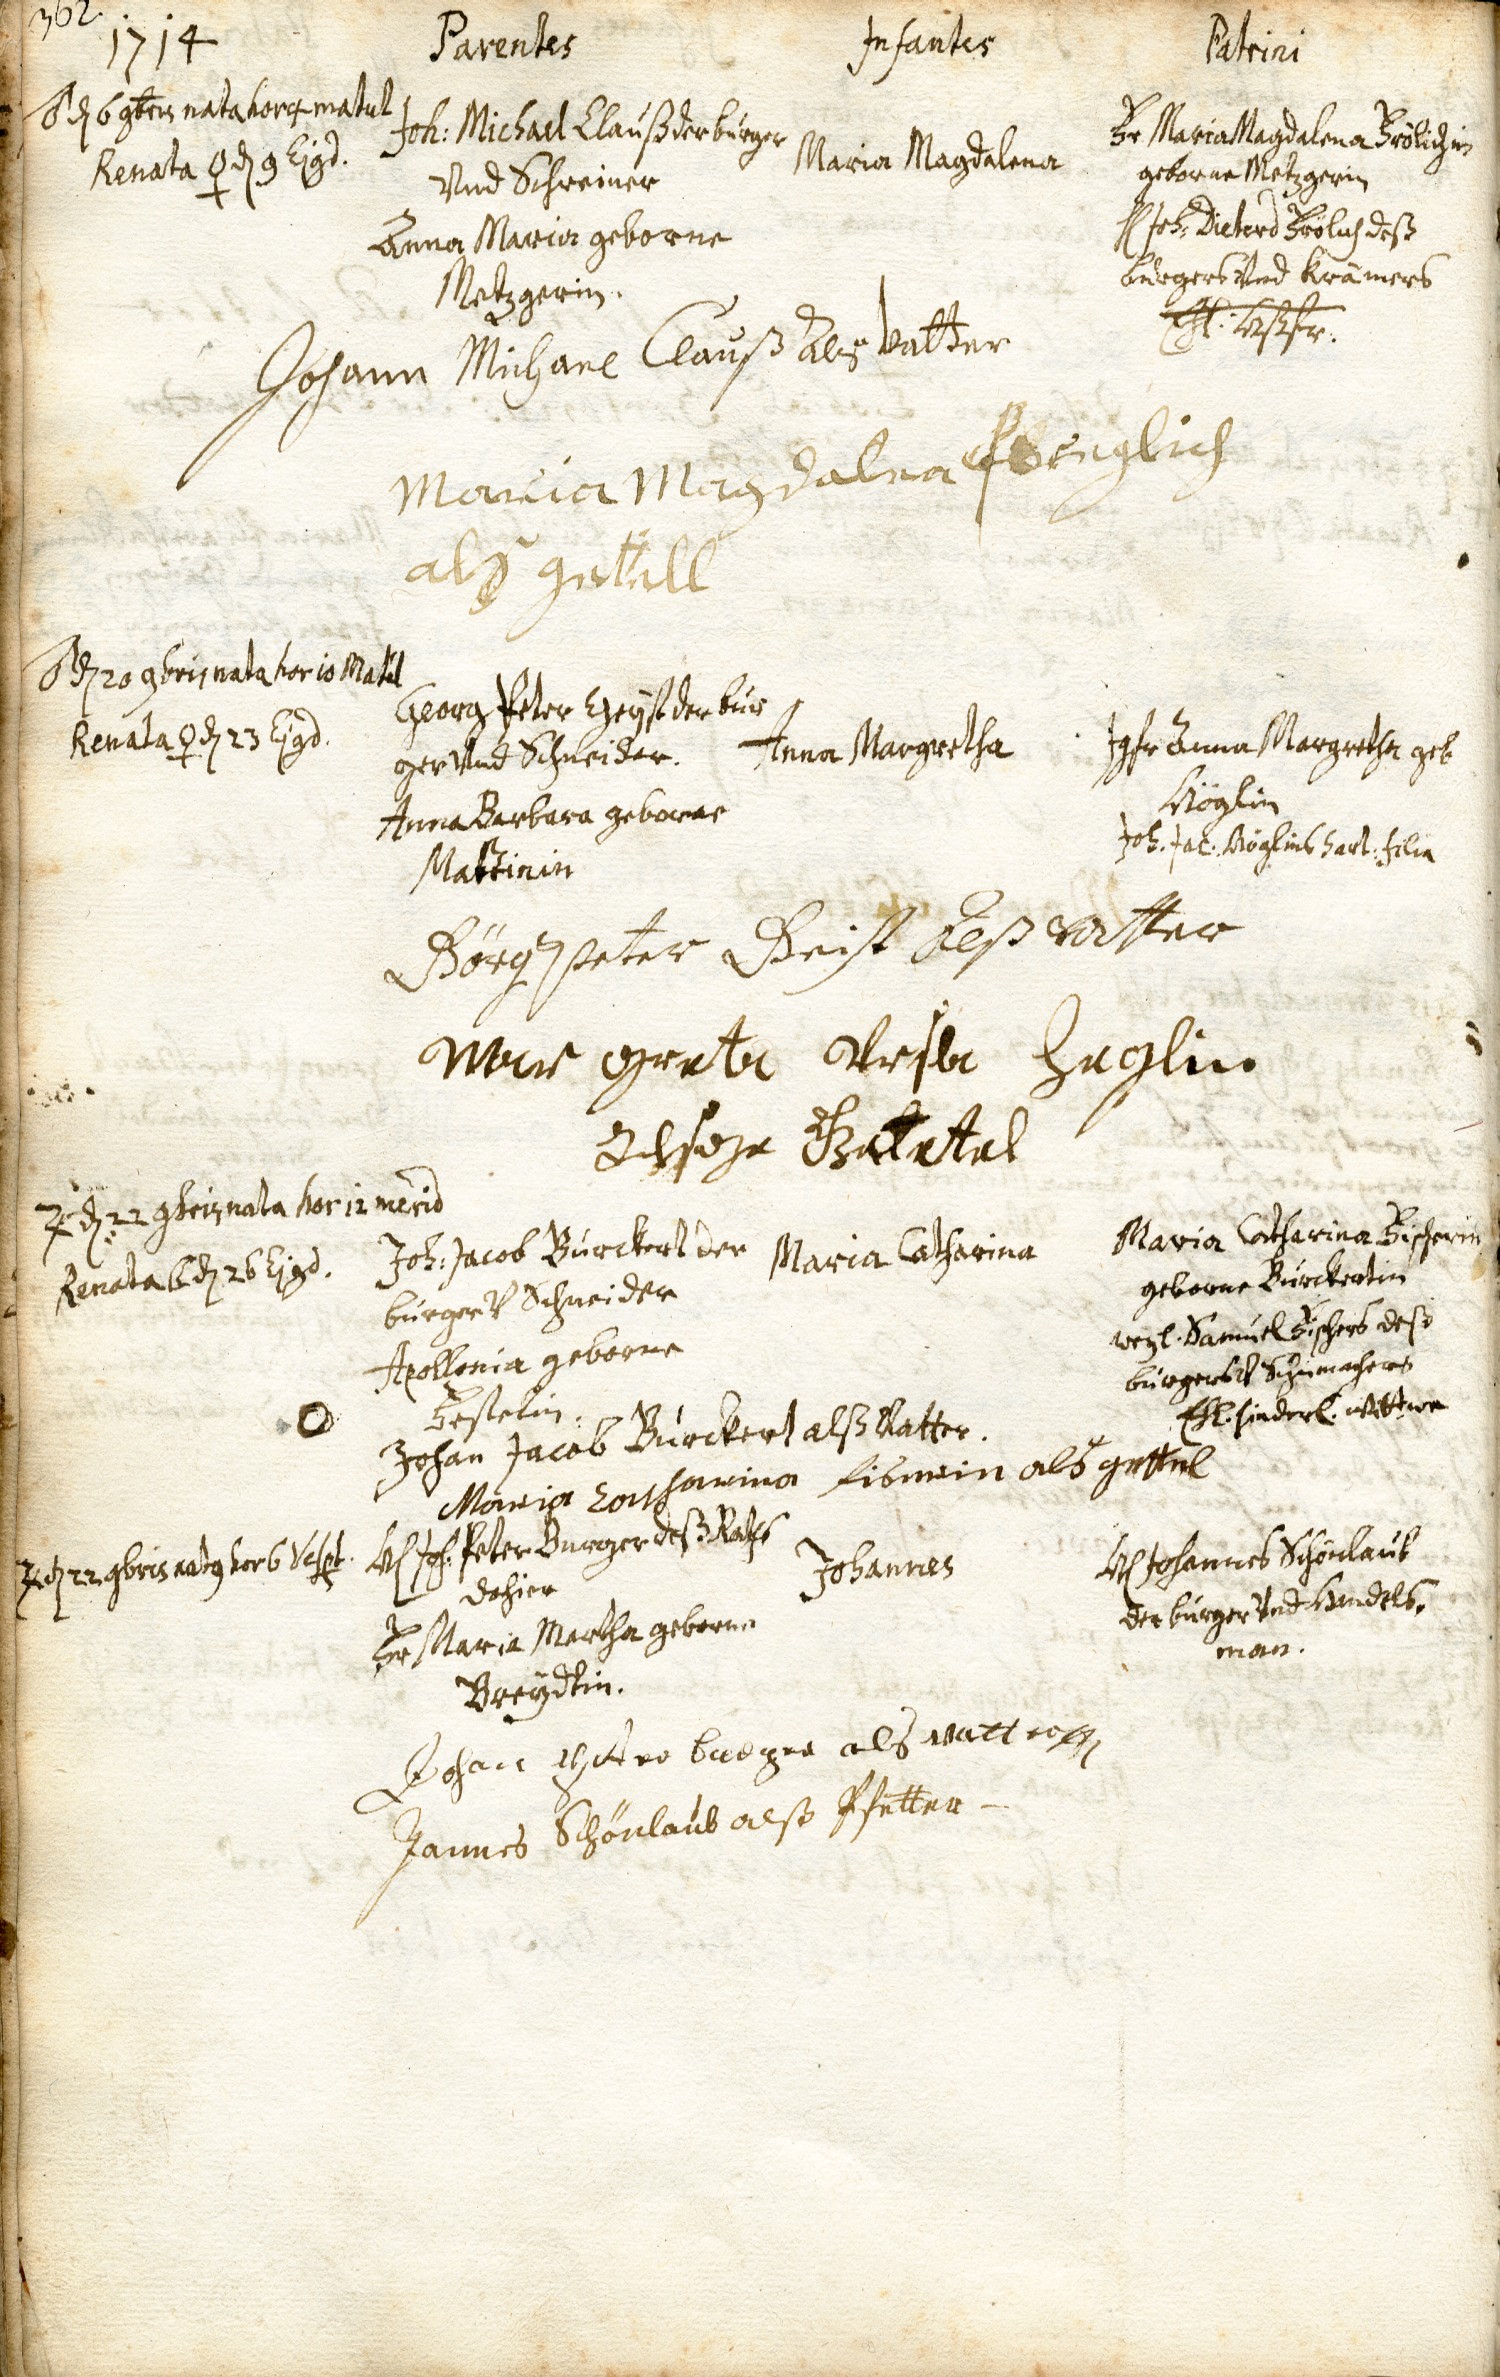 362.
1714 Parentes Infantes Patrini
♂ d 6 9bris nata hor 4 matut
Renata ♀ d 9 Ejgd.
Joh: Michael Clauß der burger
Vnd Schreiner
Anna Maria geborne
Metzgerin.
Maria Magdalena
Fr Maria Magdalena Frölichin
geborne Metzgerin
H Joh: Dieterd Frölich deß
burgers Vnd Krämers
Johann Michael Clauß als Vatter
Maria Magdalena
alß gettell
♂ d 20 9bris nata hor 10 Matut
Renata ♀ d 23 Ejgd.
Georg Peter Geyst der bur
ger Vnd Schneider.
Anna Barbara geborne
Anna Margretha
Jgfr Anna Margretha geb
Joh. Jac. filia
Görg Peter Geist alß vatter
Mar greta
♃ d 22 9bris nata hor 12 merid
Renata d 26 Ejgd.
Joh: Jacob Burckert der
burger V Schneider
Apollonia geborne
Maria Catharina
Maria Catharina Fischerin
geborne Burckertin
weyl. Samuel Fischers deß
burgers V Schumachers
Ehl. hinderl. wittwe
Johan Jacob Burckert alß Vatter.
Maria Catharina als gettel
♃ d 22 9bris natq hor 6 Vespt.
H Joh: Peter Burger deß Raths
dahier
Fr Maria Martha geborne
Breydtin.
Johannes
H Johannes Schönlaub
der burger Vnd Handels-
man.
Johan Peter burger als vatter
Jannes Schönlaub alß Pfetter